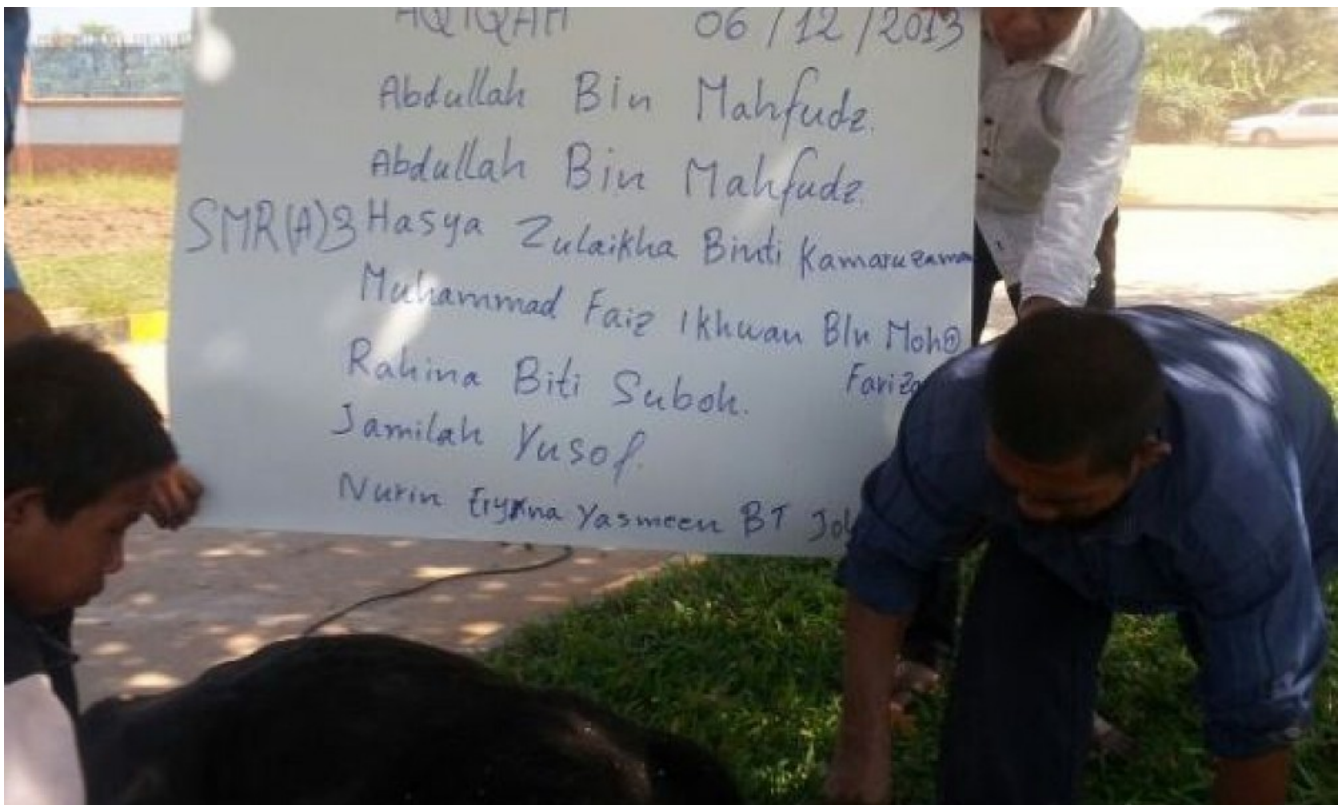 AQIQAH 06/12/2013
Abdullah Bin Mahfudz.
Abdullah Bin Mahfudz.
SMR(A)3 Hasya Zulaikha Binti Kamaruzama
Muhammad Faiz Ikhwan BIn Mohd
Fariza
Rahina Biti Suboh.
Jamilah Yusof.
Nurin Eryna Yasmeen BT Joh